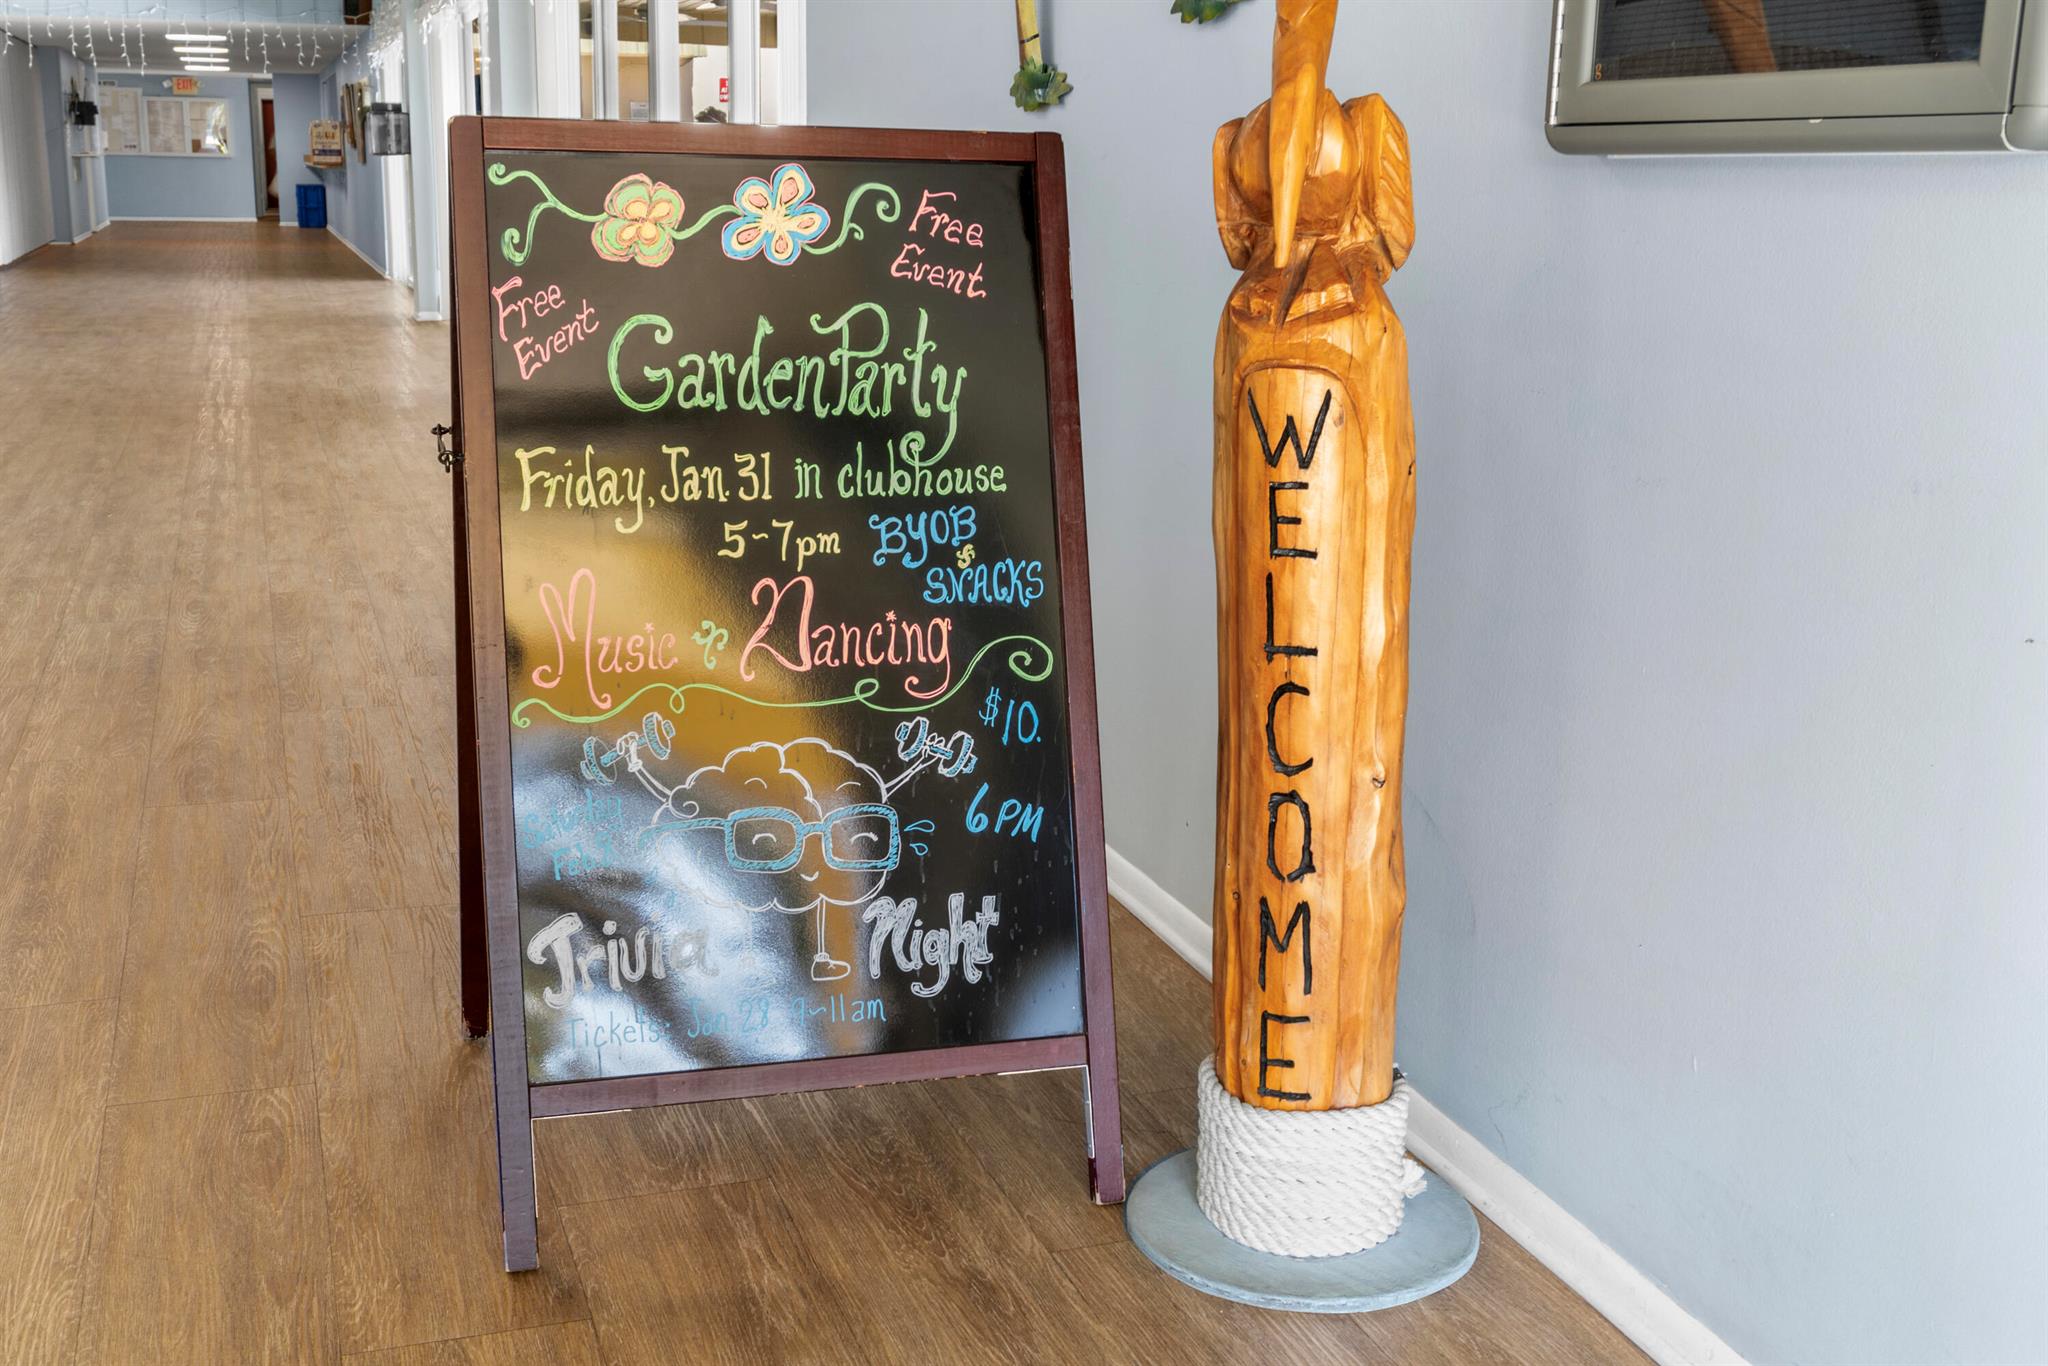 EXIT
Free
Event
Free
Event
Garden Party
Friday, Jan. 31 in clubhouse
5~7pm
BYOB
&
SNACKS
Music & Dancing
$10.
Saturday
Feb.
6 PM
Trivia Night
Tickets: Jan 28 9~11am
WELCOME